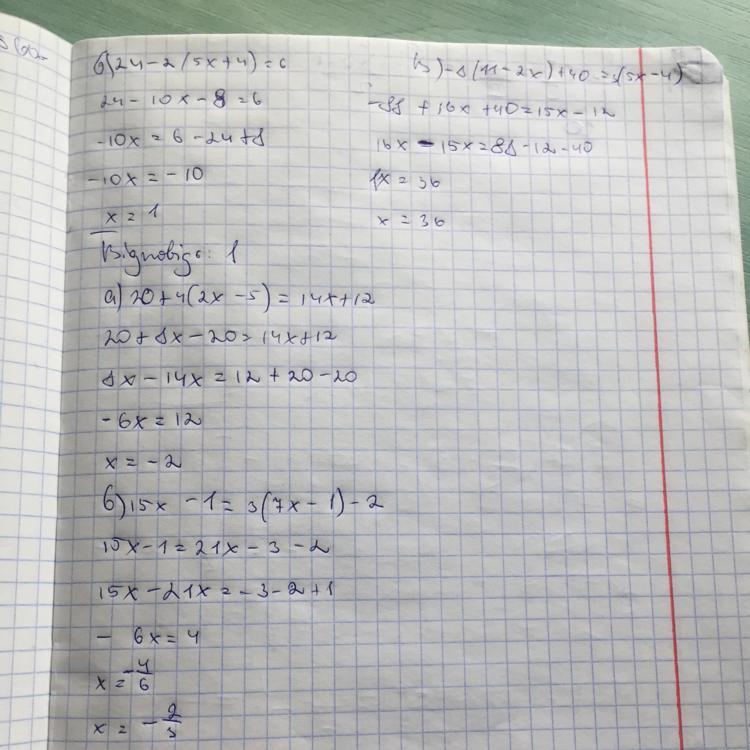 б) 24-2(5x+4)=6
24-10x-8=6
-10x=6-24+8
-10x=-10
x=1
Відповідь: 1
в)-8(11-2x)+40=3(5x-4)
-88+16x+40=15x-12
16x-15x=88-12-40
1x=36
x=36
а) 20+4(2x-5)=14x+12
20+8x-20=14x+12
8x-14x=12+20-20
-6x=12
x=-2
б) 15x-1=3(7x-1)-2
15x-1=21x-3-2
15x-21x=-3-2+1
-6x=4
x=-4/6
x=-2/3